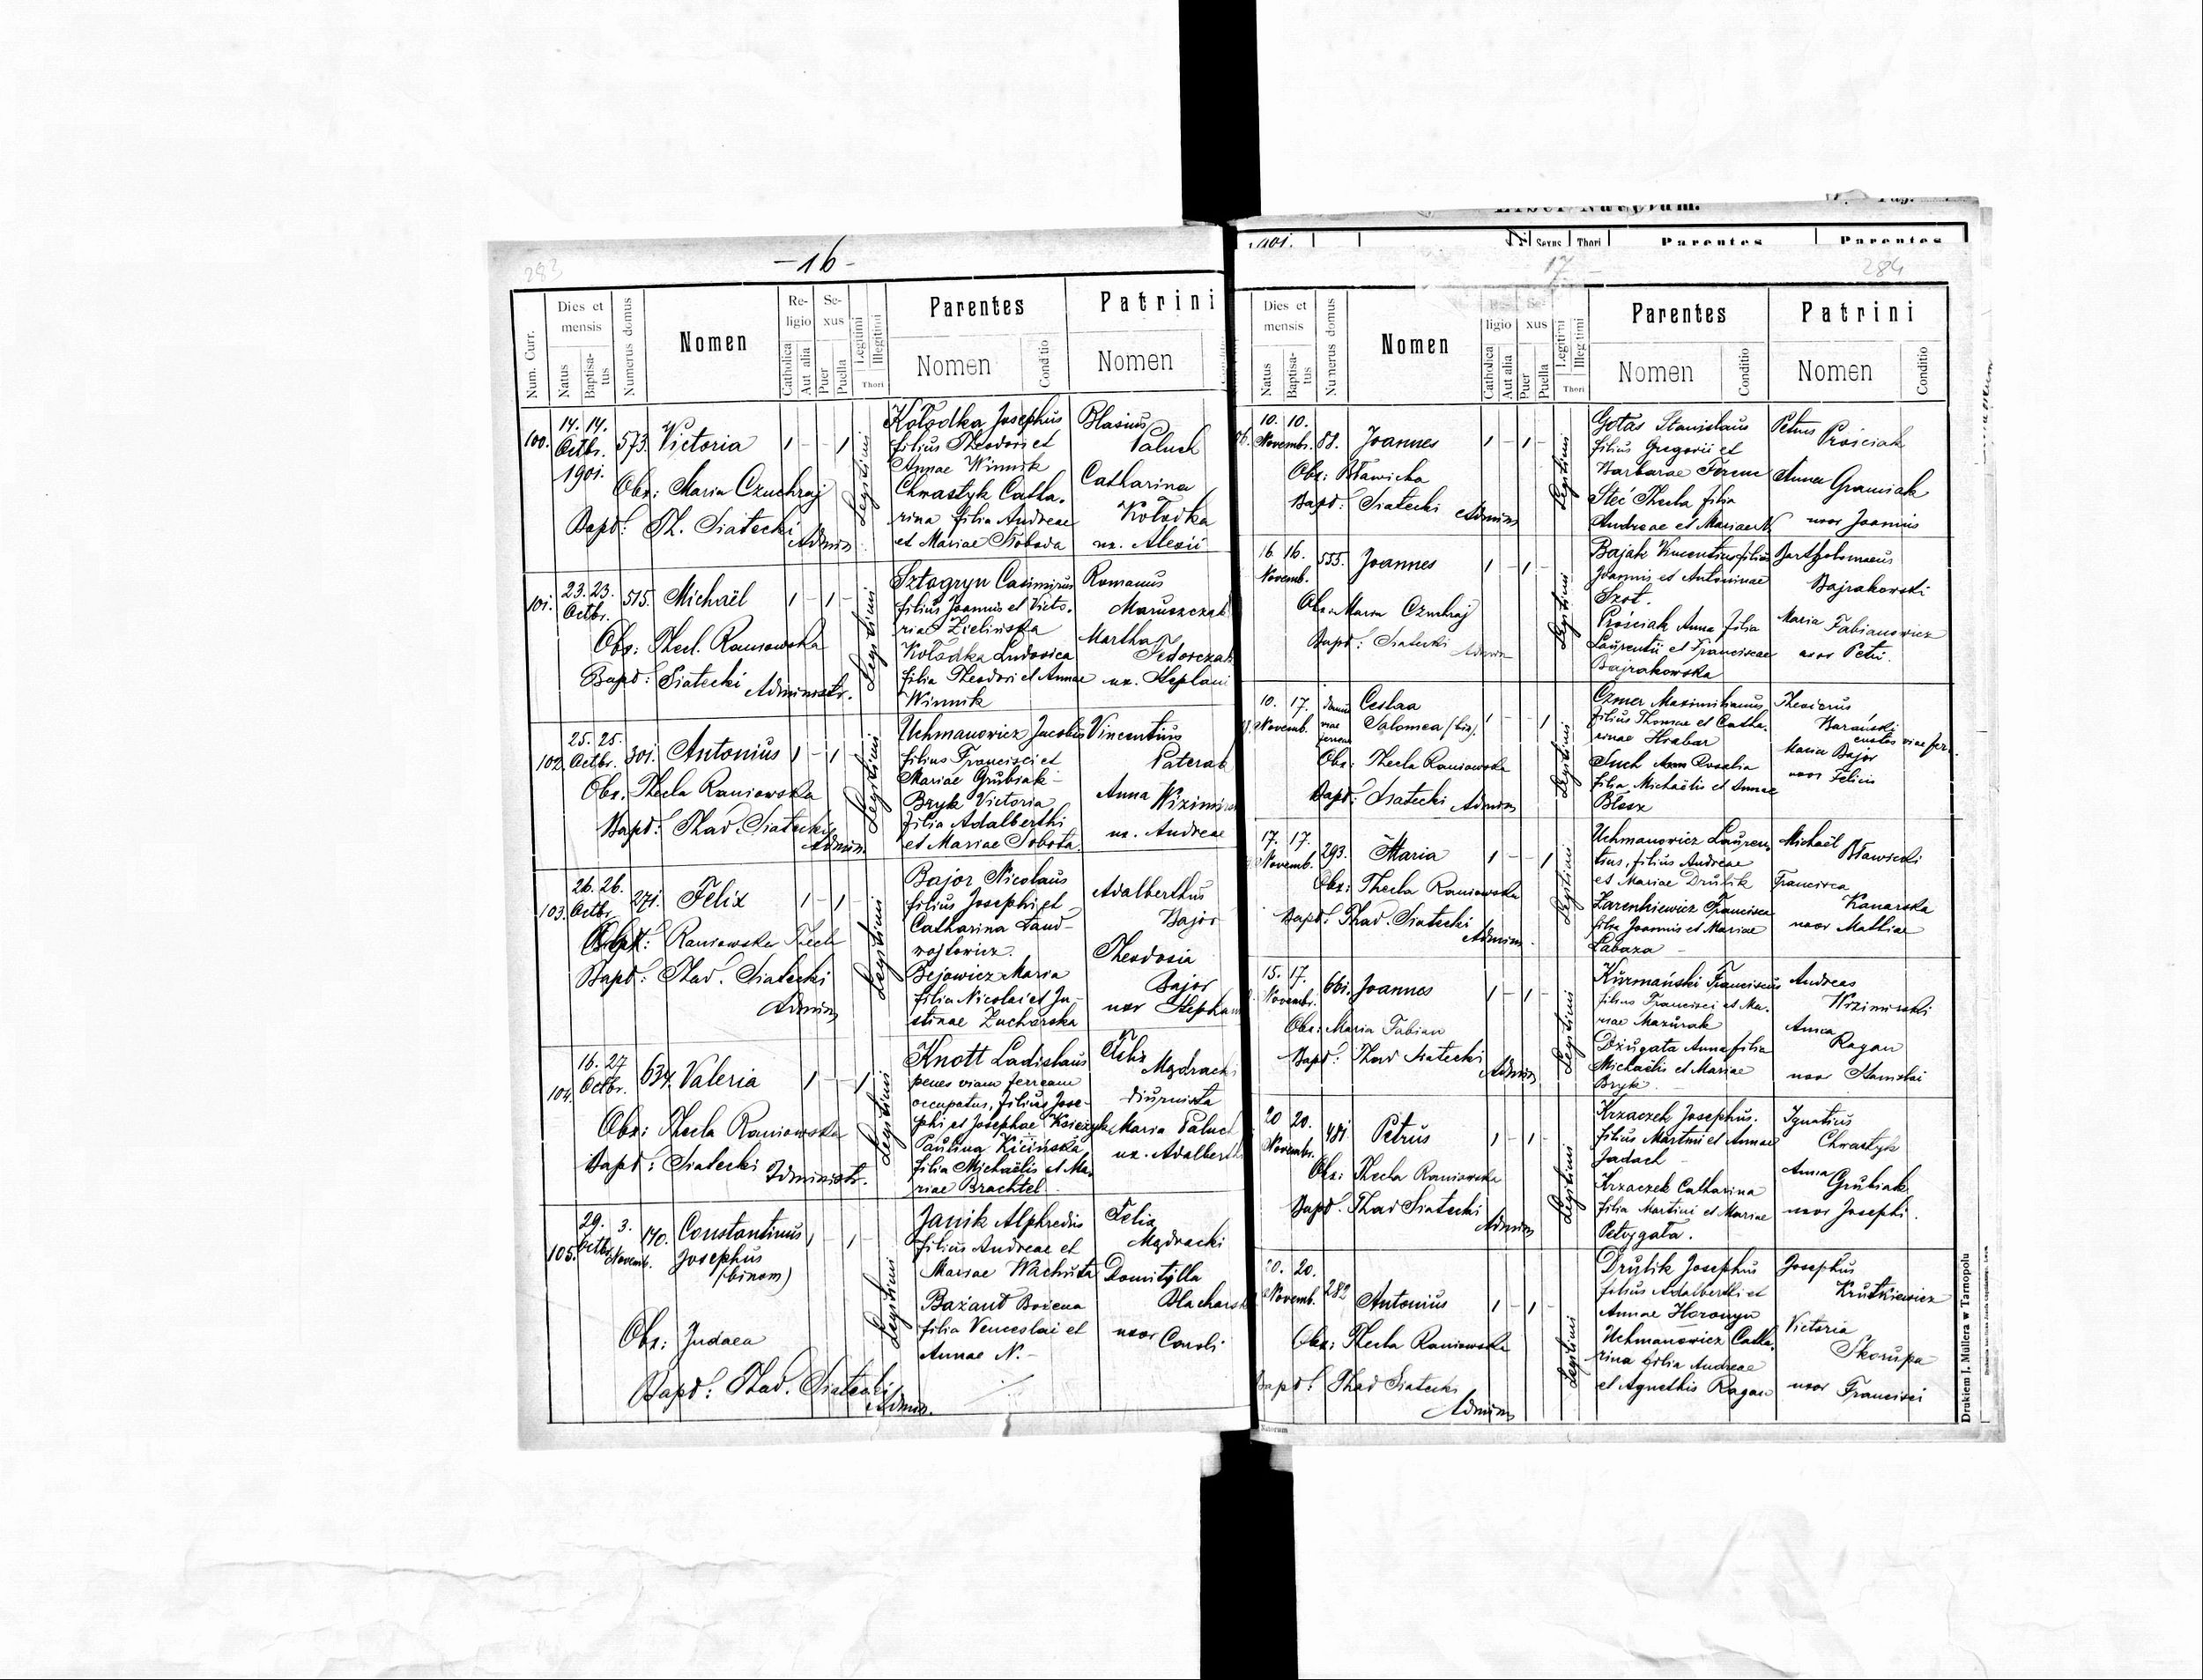 283
-16-
Num. Curr.
Dies et mensis
Natus
Baptisatus
Numerus domus
Nomen
Religio
Catholica
Aut alia
Sexus
Puer
Puella
Legitimi
Illegitimi
Thori
Parentes
Nomen
Conditio
Patrini
Nomen
100.
14. 14.
Octbr.
1901.
573.
Victoria
1 - - 1
Legitimi
Obs: Maria Czuchraj
Bapt: Th. Siatecki
Admin
Kołodka Josephus
filius Theodori et
Annae Winnik
Chwastyk Catha.
rina filia Andreae
et Mariae Słoboda
Blasius
Paluch
Catharina
Kołodka
ux. Alexii
101.
23. 23.
Octbr.
515.
Michaël
1 - 1 -
Legitimi
Obs: Thecl. Raniowska
Bapt: Siatecki Administr.
Sztogryn Casimirus
filius Joannis et Victo.
riae Zielińska
Kołodka Ludovica
filia Theodori et Annae
Winnik
Romanus
Maruszczak
Martha
ux. Stephani
102.
25. 25.
Octbr.
301.
Antonius
1 - 1
Legitimi
Obs. Thecla Raniowska
Bapt: Thad. Siatecki
Admin.
Uchmanowicz Jacobus
filius Francisci et
Mariae Grubiak -
Bryk Victoria
filia Adalberthi
et Mariae Sobota.
Vincentius
Paterak
Anna
ux. Andreae
103.
26. 26.
Octbr.
271.
Felix
1 - 1 -
Legitimi
Raniowska Thecla
Bapt: Thad. Siatecki
Admin
Bajor Nicolaus
filius Josephi et
Catharina Land-
wojtowicz.
Bejowicz Maria
filia Nicolai et Ju-
stinae Zucharska
Adalberthus
Bajor
Theodosia
Bajor
uxor
104.
16. 27
Octbr.
634.
Valeria
1 - - 1
Legitimi
Obs: Thecla Raniowska
Bapt: Siatecki Administr.
Knott Ladislaus
penes viam ferream
occupatus, filius Jose-
phi et Josephae Księżyk
Paulina Kicińska
filia Michaëlis et Ma.
riae Brachtel
Felix
diurnista
Maria
105.
29. 3.
Octbr. Novemb.
170.
Constantinus
Josephus
(binom)
1 - 1 -
Legitimi
Obs: Judaea
Bapt: Thad. Siatecki
Admin.
Janik Alphredus
filius Andreae et
Mariae Wachuta
Bażant Bożena
filia Venceslai et
Annae N. -
Felix
Mądracki
Domitylla
uxor Caroli
Liber Natorum.
1901.
Sexus
Thori
Parentes
Parentes
17
284
Dies et mensis
Natus
Baptisatus
Numerus domus
Nomen
Religio
Catholica
Aut alia
Sexus
Puer
Puella
Legitimi
Illegitimi
Thori
Parentes
Nomen
Conditio
Patrini
Nomen
Conditio
10. 10.
Novembr.
88.
Joannes
1 - 1 -
Legitimi
Obs: Bławicka
Bapt: Siatecki Admin
Gotas Stanislaus
filius Gregorii et
Barbarae
Steć Thecla filia
Andreae et Mariae N.
Petrus
Prościak
Anna
uxor Joannis
16 16.
Novemb.
555.
Joannes
1 - 1 -
Legitimi
Obs. Maria Czuchraj
Bapt: Siatecki Admin
Bajak Vincentius filius
Joannis et Antoninae
Szot.
Prościak Anna filia
Laurentii et Franciscae
Bajrakowska
Bartholomaeus
Bajrakowski
Maria Fabianowicz
uxor Petri.
10. 17.
Novemb.
domus
viae
ferreae
Ceslaa
Salomea (bin).
1 - - 1
Legitimi
Obs: Thecla Raniowska
Bapt: Siatecki Admin
Czmer Maximilianus
filius Thomae et Catha.
rinae Hrabar
Such Rosalia
filia Michaëlis et Annae
Błesz
Barański
custos viae ferr.
Maria Bajor
uxor Felicis
17. 17.
Novemb.
293.
Maria
1 - - 1
Legitimi
Obs: Thecla Raniowska
Bapt: Thad. Siatecki
Admin
Uchmanowicz Lauren.
tius, filius Andreae
et Mariae Drulik
Francisca
filia Joannis et Mariae
Łabaza -
Michaël
Bławicki
Francisca
Kanarska
uxor Mathiae
15. 17.
Novembr.
661.
Joannes
1 - 1 -
Legitimi
Obs: Maria Fabian
Bapt: Thad Siatecki
Admin
Kurmański Franciscus
filius Francisci et Ma.
riae Mazurak
Dżugata Anna filia
Michaëlis et Mariae
Bryk -
Andreas
Anna
Ragan
uxor Stanislai
20 20.
Novembr.
481.
Petrus
1 - 1 -
Legitimi
Obs: Thecla Raniowska
Bapt. Thad Siatecki
Admin
Krzaczek Josephus.
filius Martini et Annae
Jadach -
Krzaczek Catharina
filia Martini et Mariae
Petrygata.
Ignatius
Chwastyk
Anna
Grubiak
uxor Josephi.
20. 20.
Novemb.
282
Antonius
1 - 1 -
Legitimi
Obs: Thecla Raniowska
Bapt: Thad Siatecki
Admin
Drulik Josephus
filius Adalberthi et
Annae Horonyn
Uchmanowicz Catha.
rina filia Andreae
et Agnethis Ragan
Josephus
Krutkiewicz
Victoria
Skorupa
uxor Francisci
Natorum
Drukiem J. Müllera w Tarnopolu